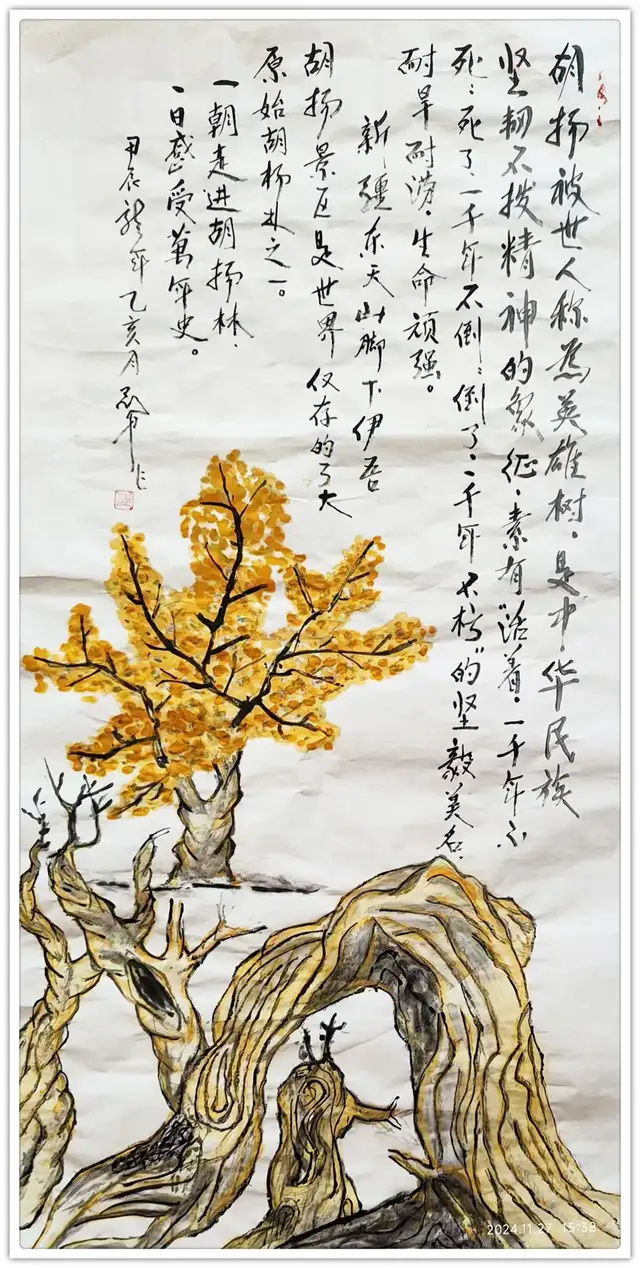 胡杨被世人称为英雄树，是中华民族
坚韧不拔精神的象征，素有“活着，一千年不
死；死了，一千年不倒；倒了，一千年不朽”的坚毅美名，
耐旱耐涝，生命顽强。
新疆东天山脚下伊吾
胡杨景区是世界仅存的三大
原始胡杨林之一。
一朝走进胡杨林，
一日感受萬年史。
甲辰龙年乙亥月
2024.11.27 15:38